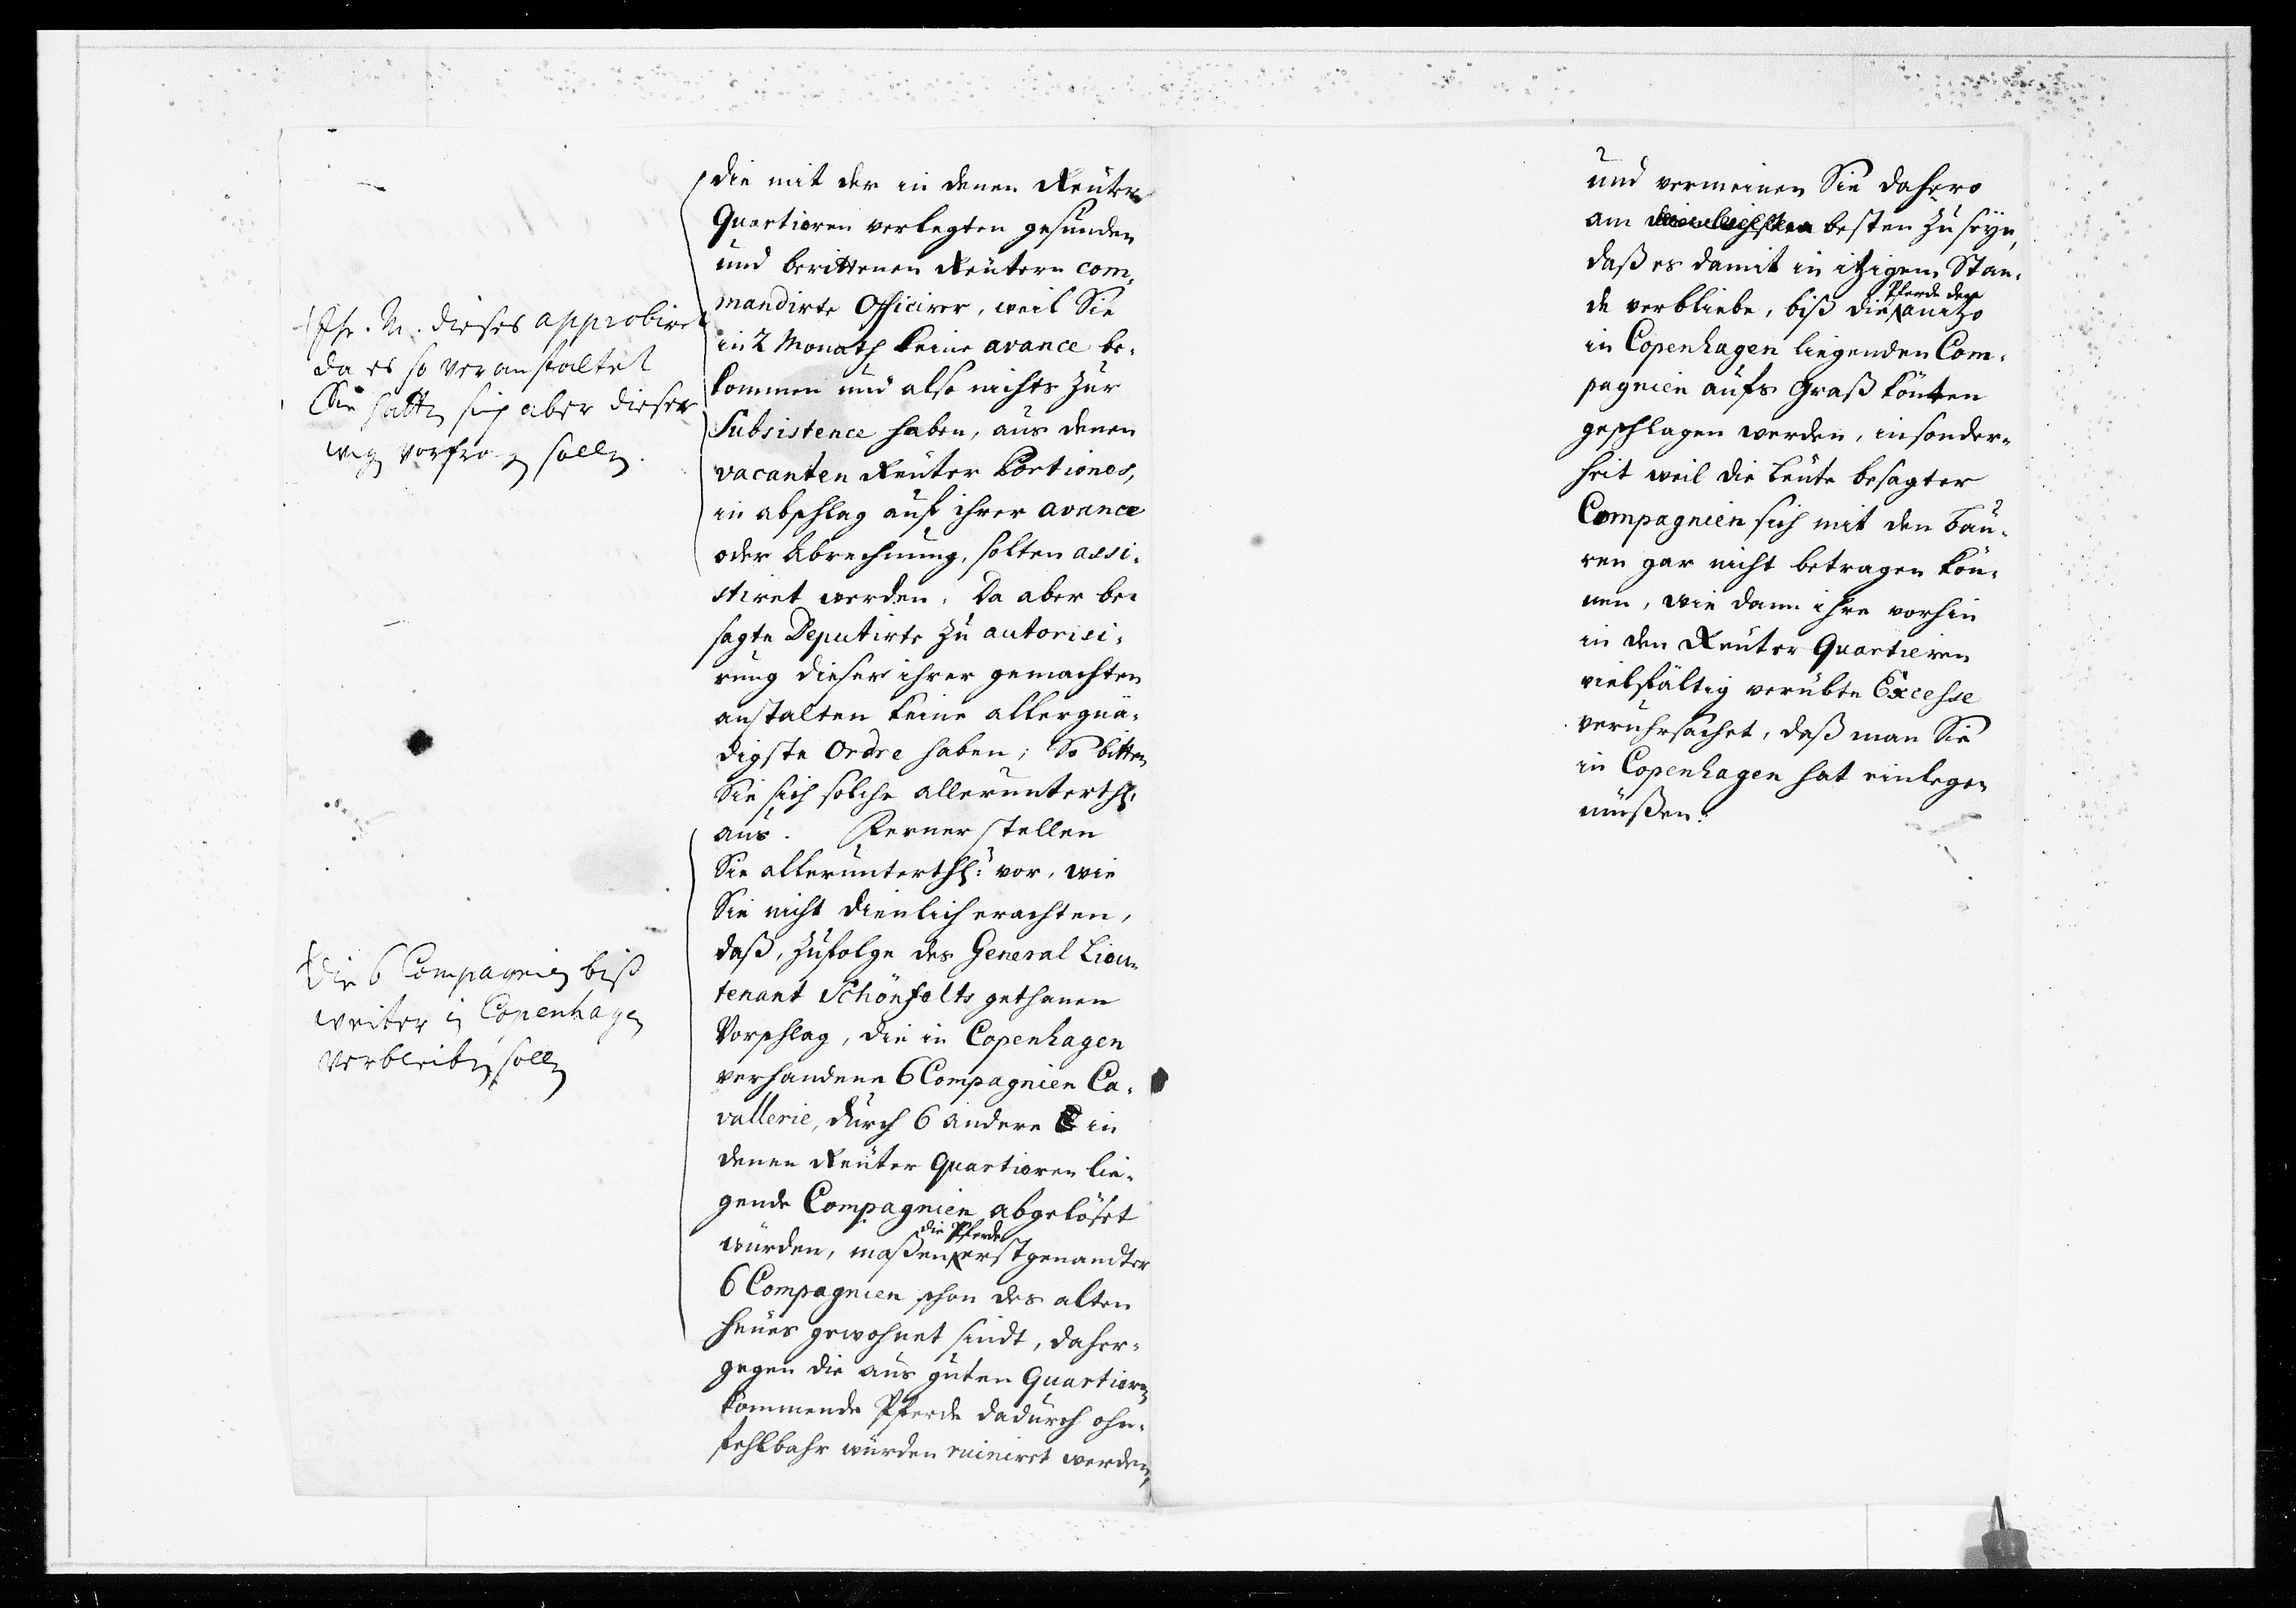 Ihr. M. dieses approbiret
da es so veranstaltet
Sie hatten sich aber dieser
weg vorfragen sollen.
die 6 Compagnien biß
weiter in Copenhagen
verbleiben sollen
die mit der in denen Reuter
Quartieren verlegten gesunden
und berittenen Reutern com-
mandirte Officirer, weil Sie
in 2 Monath keine avance be-
kommen und also nichts zur
Subsistence haben, aus denen
vacanten Reuter Portiones,
in abschlag auf ihrer avance
oder Abrechnung, solten assi-
stiret werden. Da aber be-
sagte Deputirte zu autorisi-
rung dieser ihrer gemachten
anstalten keine allergnä-
digste Ordre haben; So bitten
Sie sich solche allerunterthl:
aus. Ferner stellen
Sie allerunterthl: vor, wie
Sie nicht dienlich erachten,
daß, zufolge des General Lieu-
tenant Schönfelts gethanen
Vorschlag, die in Copenhagen
verhandene 6 Compagnien Ca-
vallerie, durch 6 andere in
denen Reuter Quartieren lie-
gende Compagnien abgelöset
die Pferde
würden, maßen erstgenandter
6 Compagnien schon des alten
heues gewohnet sindt, daher-
gegen die aus guten Quartieren
kommende Pferde dadurch ohn-
fehlbahr würden ruiniret werden,
und vermeinen Sie dahero
am besten zu seyn,
daß es damit in itzigem Stan-
Pferde der
de verbliebe, biß die anitzo
in Copenhagen liegenden Com-
pagnien aufs Graß könten
geschlagen werden, insonder-
heit weil die Leute besagter
Compagnien sich mit den Bau-
ren gar nicht betragen kön-
nen, wie dann ihre vorhin
in den Reuter Quartieren
vielfältig verübte Excesse
veruhrsachet, daß man Sie
in Copenhagen hat einlegen
müßen.